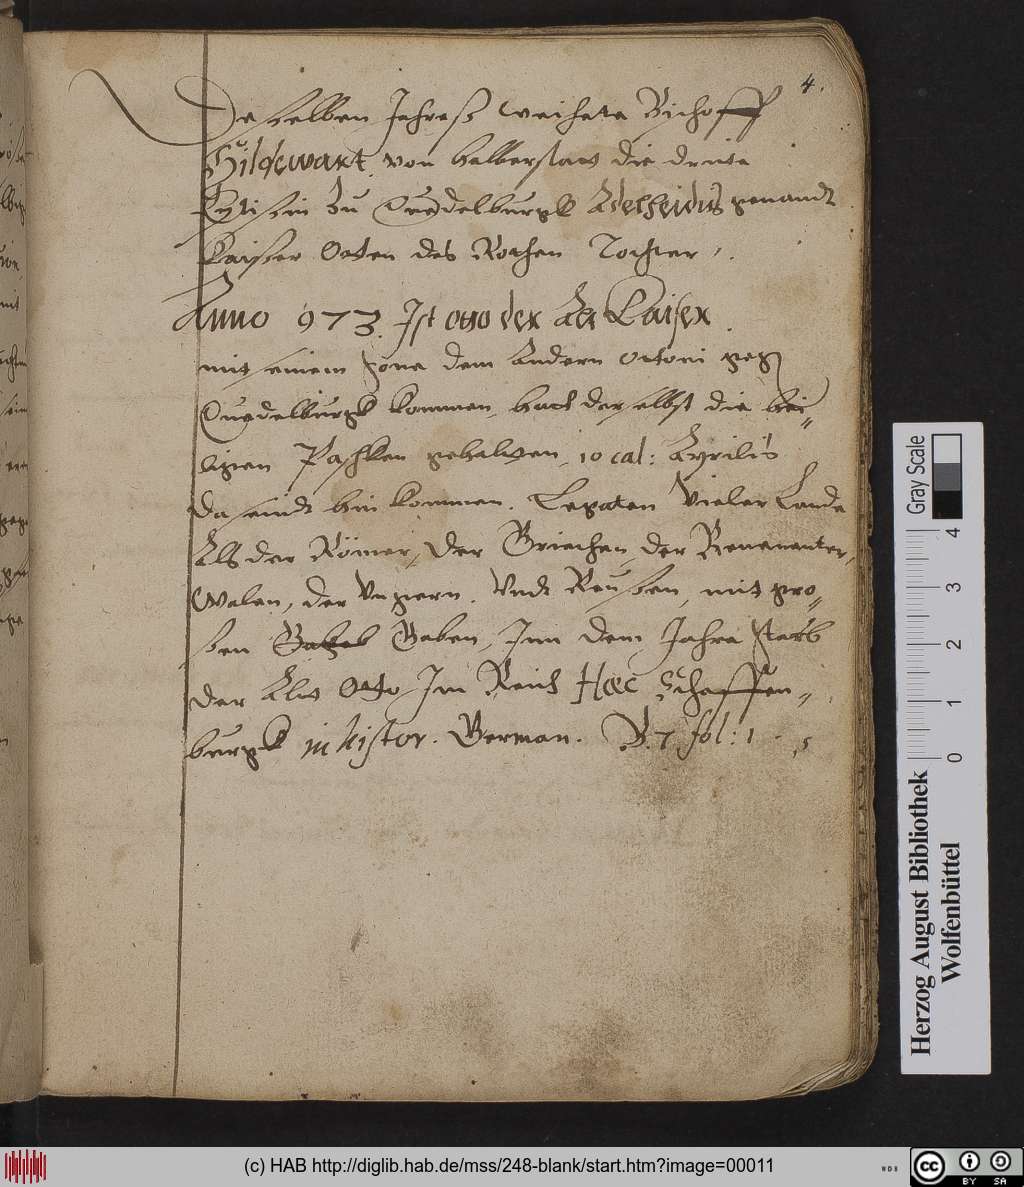 4.
Deselben Jahres weihete Bischoff
Hildewart von halberstat die dritte
Eptisin zu Quedelburgk Adelheidis genandt
Kaiser Otten des Rothen Tochter.
Anno 973. Ist otto der Alt Kaiser
mit seinem sone dem Andern Ottoni gegen
Quedelburgk kommen, hatt derselbst die hei„
ligen Pashken gehalten, 10 cal: Aprilis
Da seindt hin kommen, Legaten Vieler Lande
Als der Römer, Der Griechen, der Beneventer,
Walen, der Ungern, Undt Reussen, mit gro„
ßen Gaben, Inn dem Jahre starb
der Alte Otto Im Reich Haec Schaffen„
burgk in histor. German. B. 7 fol: 1
Herzog August Bibliothek
Wolfenbüttel
Gray Scale
0 1 2 3 4
(c) HAB http://diglib.hab.de/mss/248-blank/start.htm?image=00011
WDB
cc BY SA